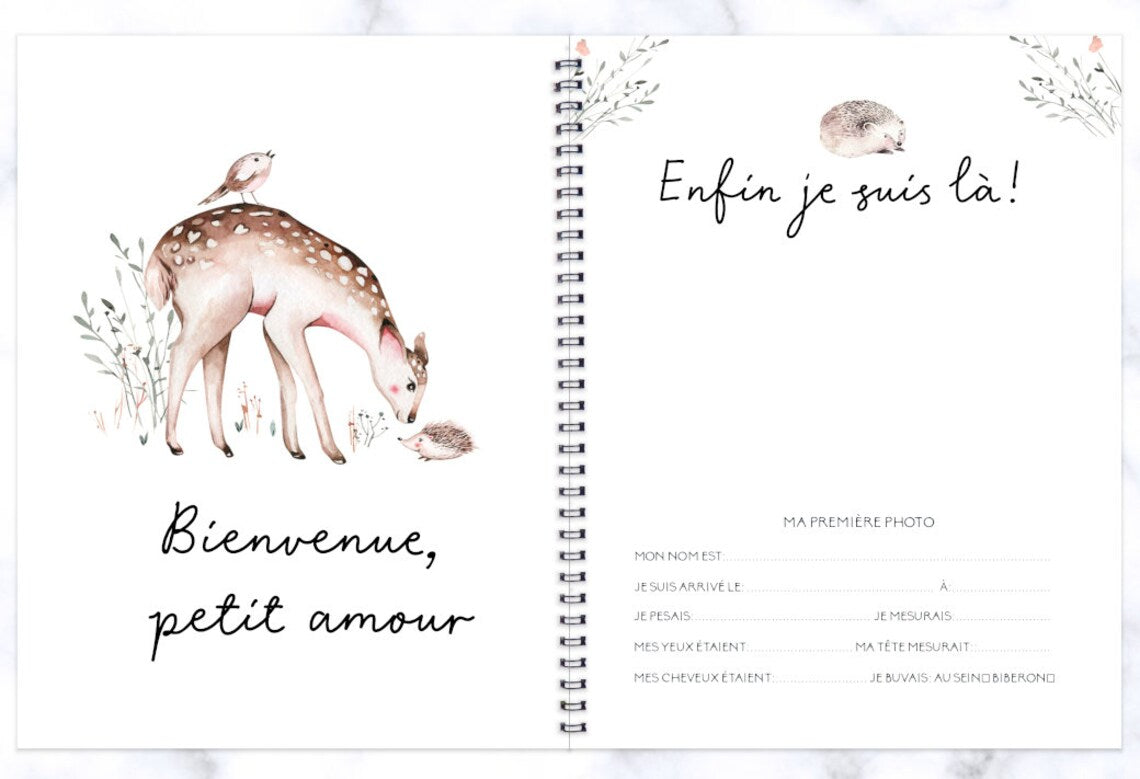 Bienvenue,
petit amour
Enfin je suis là!
MA PREMIÈRE PHOTO
MON NOM EST:
JE SUIS ARRIVÉ LE: À:
JE PESAIS: JE MESURAIS:
MES YEUX ÉTAIENT: MA TÊTE MESURAIT:
MES CHEVEUX ÉTAIENT: JE BUVAIS: AU SEIN☐ BIBERON☐